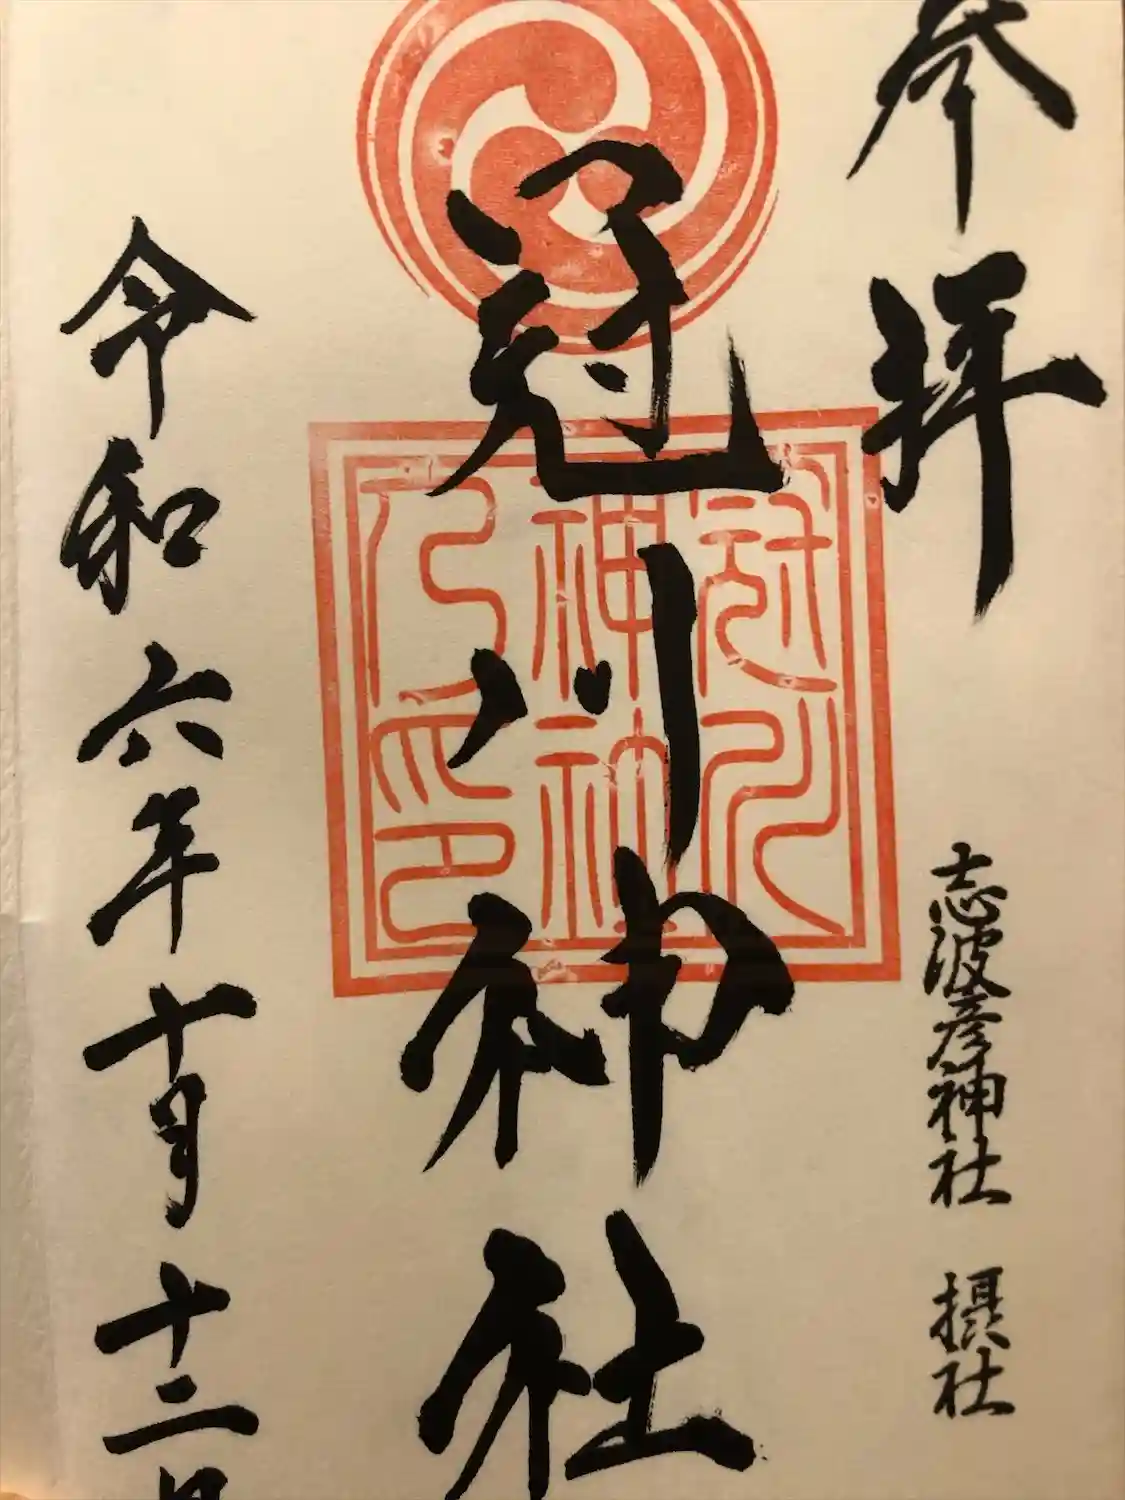 参拝
志波彦神社 摂社
冠川神社
冠川
神社
之印
令和六年十月十二日